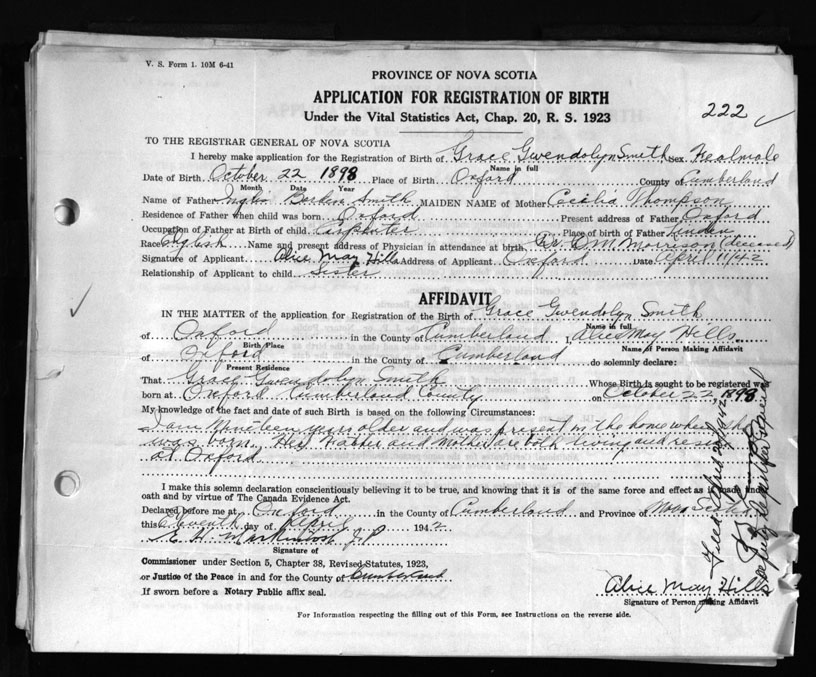 V. S. Form 1. 10M 6-41
PROVINCE OF NOVA SCOTIA
APPLICATION FOR REGISTRATION OF BIRTH
222
Under the Vital Statistics Act, Chap. 20, R. S. 1923
TO THE REGISTRAR GENERAL OF NOVA SCOTIA
I hereby make application for the Registration of Birth of Grace Gwendolyn Smith Sex
Name in full
Date of Birth October 22 1898 Place of Birth Oxford County of Cumberland
Month Date Year
Name of Father Smith MAIDEN NAME of Mother Cecelia Thompson
Residence of Father when child was born Oxford Present address of Father Oxford
Occupation of Father at Birth of child Carpenter Place of birth of Father Linden
Race English Name and present address of Physician in attendance at birth Dr. D. M. Morrison (deceased)
Signature of Applicant Alice May Hills Address of Applicant Oxford Date April 11/42
Relationship of Applicant to child Sister
AFFIDAVIT
IN THE MATTER of the application for Registration of the Birth of Grace Gwendolyn Smith
Name in full
of Oxford in the County of Cumberland I, Alice May Hills
Birth Place Name of Person Making Affidavit
of Oxford in the County of Cumberland do solemnly declare:
Present Residence
That Grace Gwendolyn Smith Whose Birth is sought to be registered was
born at Oxford Cumberland County on October 22, 1898
My knowledge of the fact and date of such Birth is based on the following Circumstances:
I am years older and was present in the home when she
was born. Her Father and Mother are both living and reside
at Oxford
I make this solemn declaration conscientiously believing it to be true, and knowing that it is of the same force and effect as if made under
oath and by virtue of The Canada Evidence Act.
Declared before me at Oxford in the County of Cumberland and Province of Nova Scotia
this eleventh day of April 1942
J P
Signature of
Commissioner under Section 5, Chapter 38, Revised Statutes, 1923,
or Justice of the Peace in and for the County of Cumberland
If sworn before a Notary Public affix seal.
Alice May Hills
Signature of Person making Affidavit
For Information respecting the filling out of this Form, see Instructions on the reverse side.
Filed April 1942
Deputy Registrar General